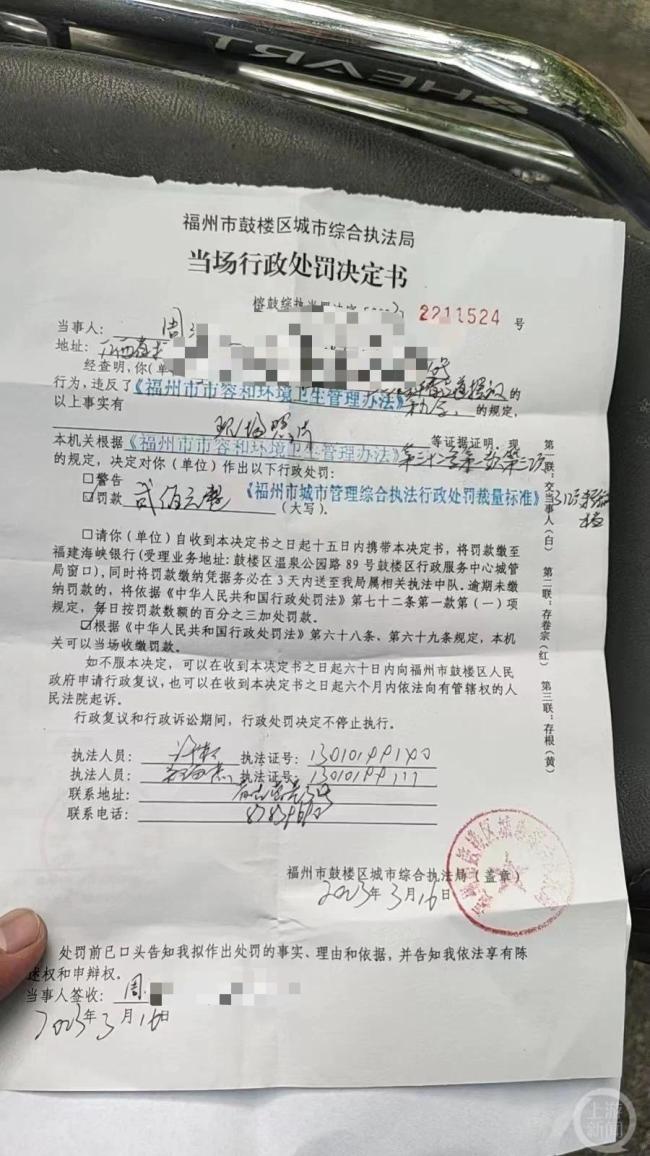 SHEART
福州市鼓楼区城市综合执法局
当场行政处罚决定书
2211524 号
当事人：周
地址：江西省
经查明，你（单
行为，违反了《福州市市容和环境卫生管理办法》 的规定，
以上事实有 现场照片 等证据证明，现
本机关根据《福州市市容和环境卫生管理办法》第三十三条第一款第三项
的规定，决定对你（单位）作出以下行政处罚：
□警告
☑罚款 贰佰元整 （大写）。《福州市城市管理综合执法行政处罚裁量标准》
□请你（单位）自收到本决定书之日起十五日内携带本决定书，将罚款缴至
福建海峡银行（受理业务地址：鼓楼区温泉公园路89号鼓楼区行政服务中心城管
局窗口），同时将罚款缴纳凭据务必在3天内送至我局属相关执法中队。逾期未缴
纳罚款的，将依据《中华人民共和国行政处罚法》第七十二条第一款第（一）项
规定，每日按罚款数额的百分之三加处罚款。
☑根据《中华人民共和国行政处罚法》第六十八条、第六十九条规定，本机
关可以当场收缴罚款。
如不服本决定，可以在收到本决定书之日起六十日内向福州市鼓楼区人民
政府申请行政复议，也可以在收到本决定书之日起六个月内依法向有管辖权的人
民法院起诉。
行政复议和行政诉讼期间，行政处罚决定不停止执行。
执法人员： 执法证号：13010199140
执法人员： 执法证号：13010199111
联系地址：
联系电话：
福州市鼓楼区城市综合执法局（盖章）
2023年3月16日
处罚前已口头告知我拟作出处罚的事实、理由和依据，并告知我依法享有陈
述权和申辩权。
当事人签收：周
2023年3月16日
第一联：交当事人（白） 第二联：存卷宗（红） 第三联：存根（黄）
上游新闻